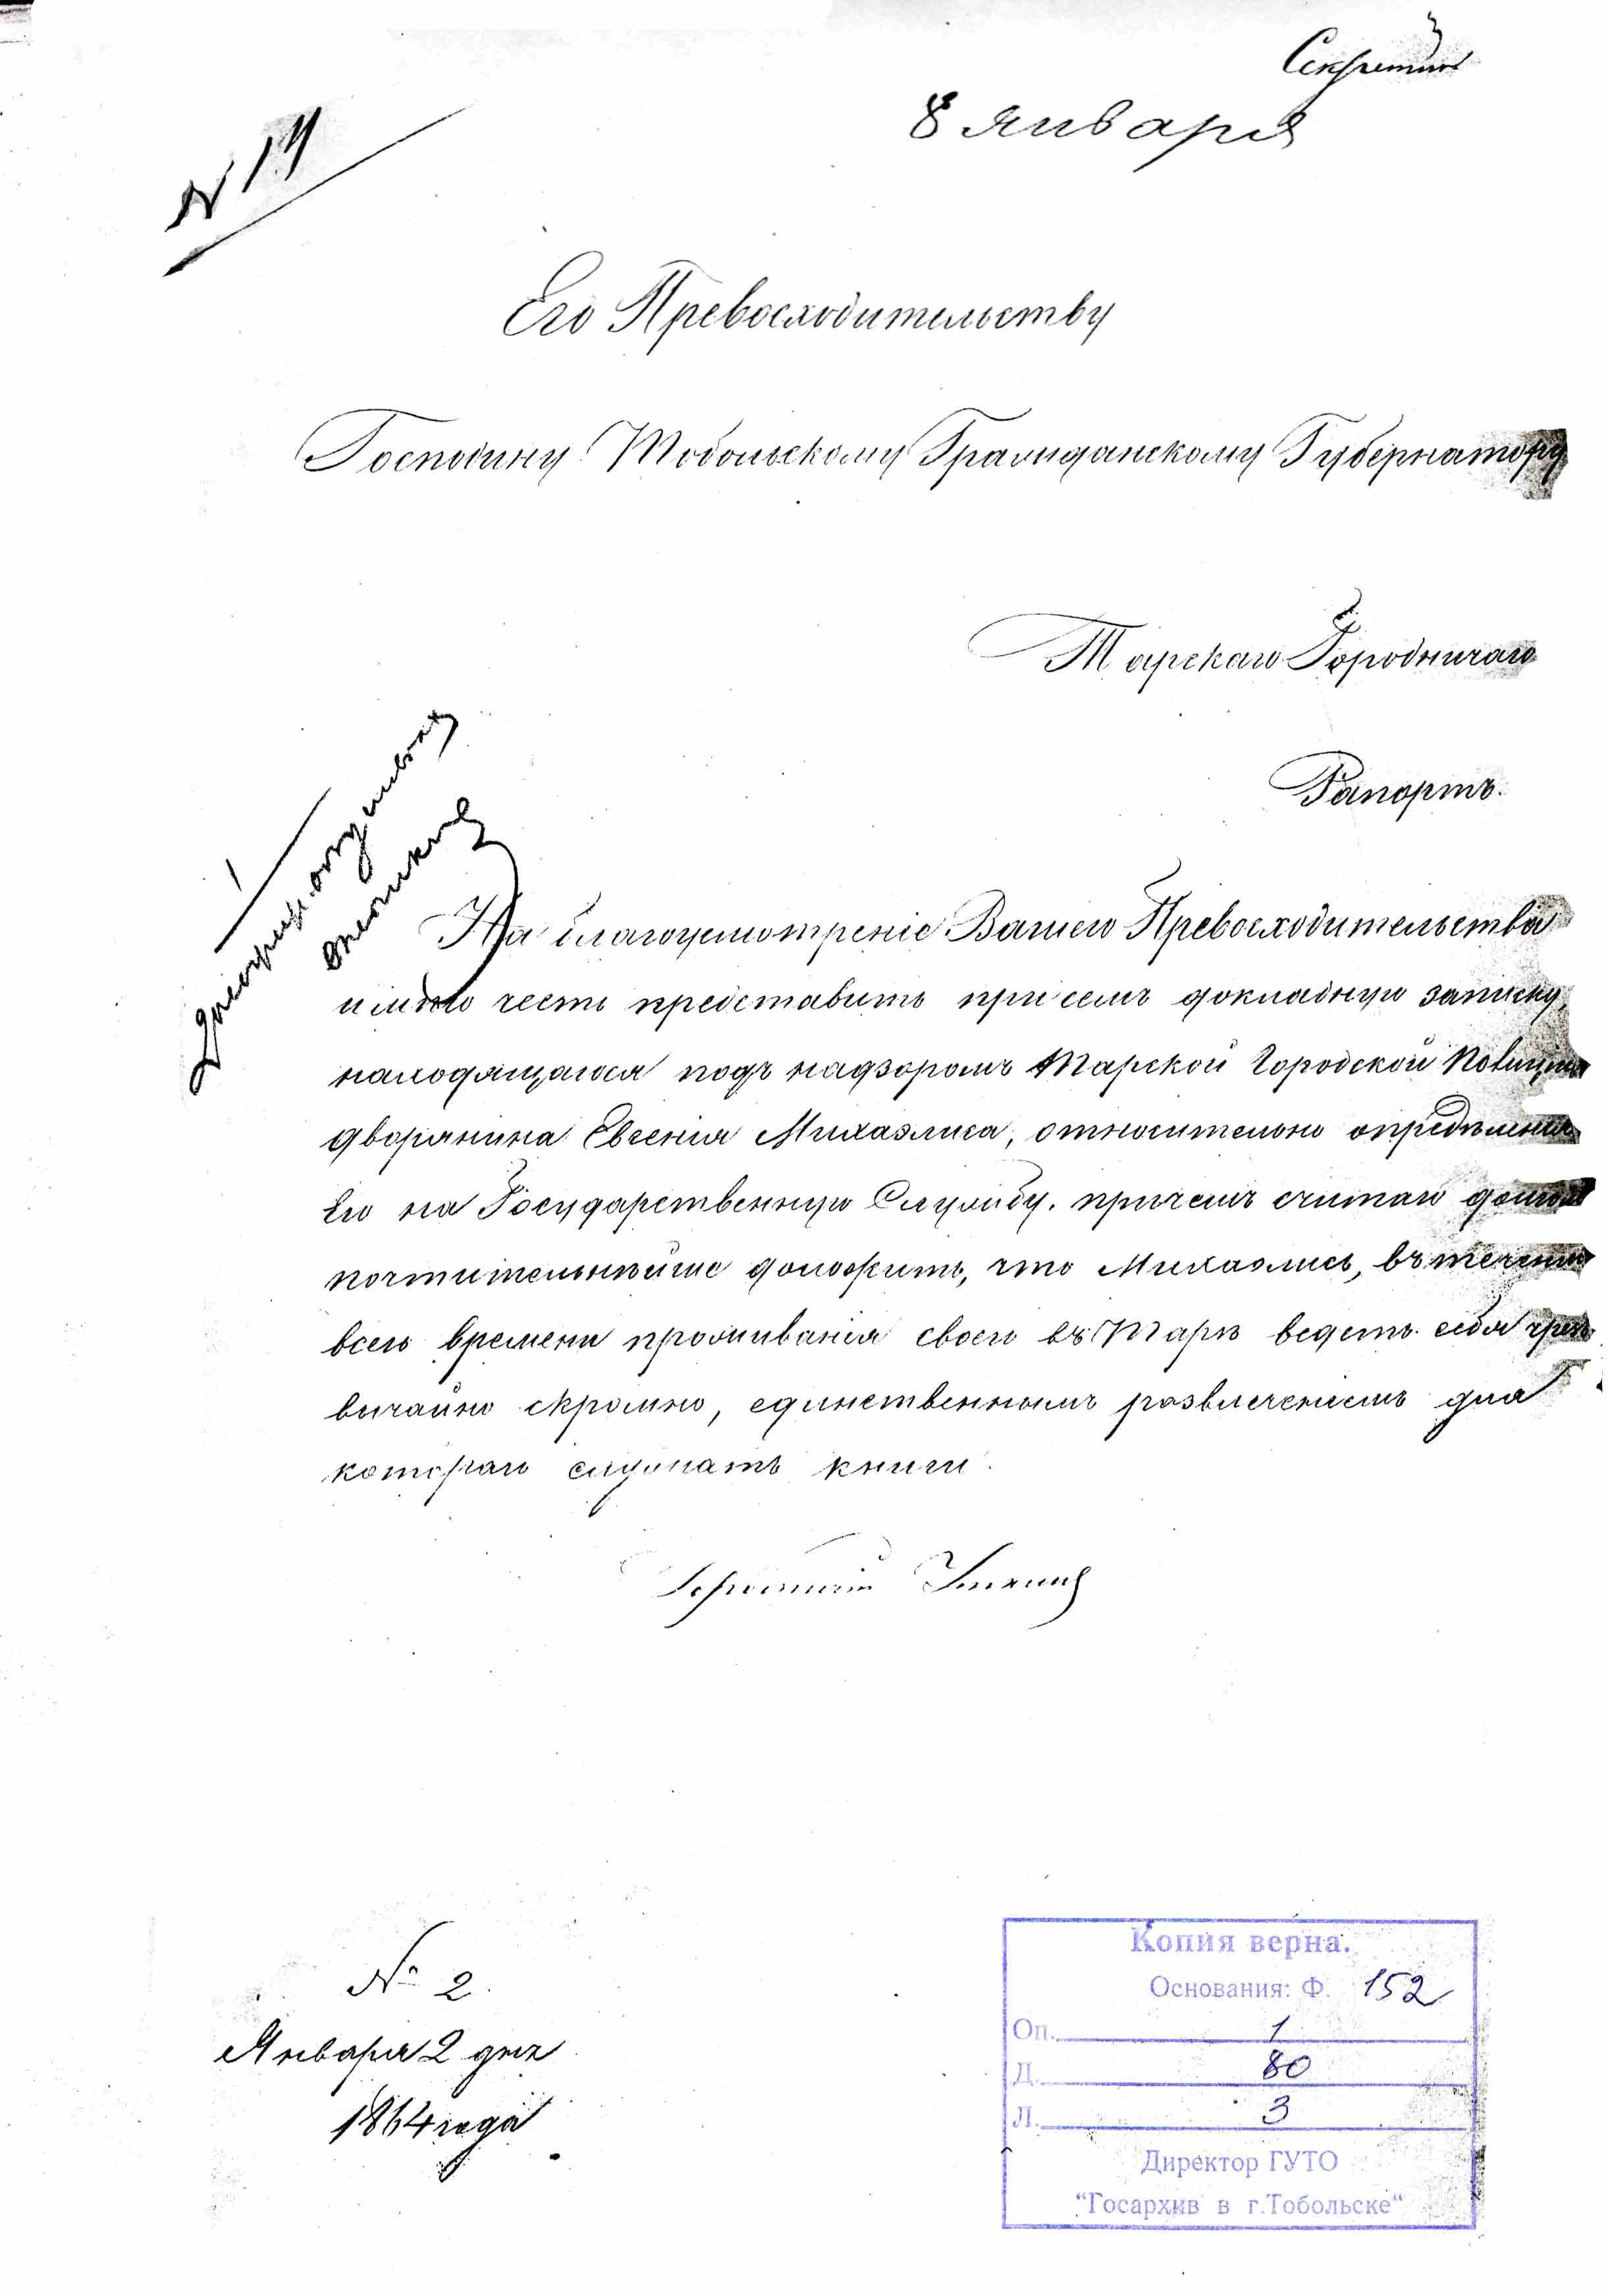 Секретно
8 января
№ 14
Его Превосходительству
Господину Тобольскому Гражданскому Губернатору
Тарскаго Городничаго
Рапортъ.
На благоусмотреніе Вашего Превосходительства
имѣю честь представить при семъ докладную записку,
находящагося подъ надзоромъ Тарской Городской Полиціи
дворянина Евгенія Михаэлиса, относительно опредѣленія
Его на Государственную Службу. причемъ считаю долгомъ
почтительнѣйше доложить, что Михаэлисъ, въ теченіи
всего времени проживанія своего въ Тарѣ ведетъ себя чрез
вычайно скромно, единственнымъ развлеченіемъ для
котораго служатъ книги.
Городничій
№ 2.
Января 2 дня
1864 года
Копия верна.
Основания: Ф. 152
Оп. 1
Д. 80
Л. 3
Директор ГУТО
"Госархив в г.Тобольске"